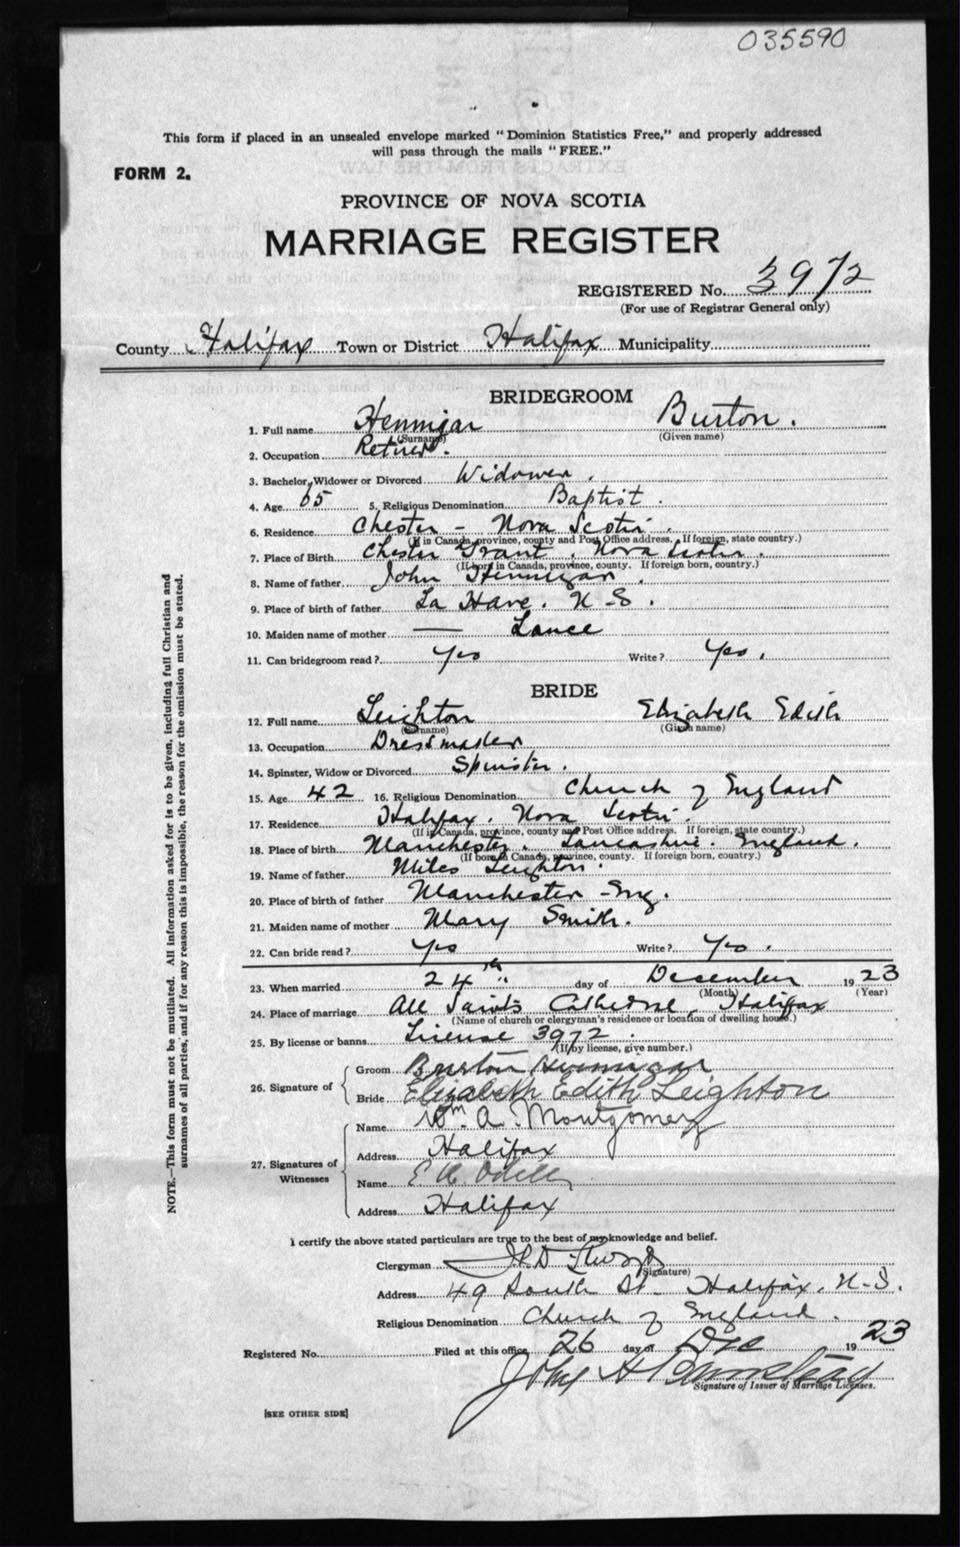 035590
This form if placed in an unsealed envelope marked "Dominion Statistics Free," and properly addressed
will pass through the mails "FREE."
FORM 2.
PROVINCE OF NOVA SCOTIA
MARRIAGE REGISTER
REGISTERED No. 3972
(For use of Registrar General only)
County Halifax Town or District Halifax Municipality
BRIDEGROOM
1. Full name Hennigar Burton.
(Surname) (Given name)
2. Occupation Retired.
3. Bachelor, Widower or Divorced Widower.
4. Age 65 5. Religious Denomination Baptist.
6. Residence Chester - Nova Scotia.
(If in Canada, province, county and Post Office address. If foreign, state country.)
7. Place of Birth Chester Grant, Nova Scotia.
(If born in Canada, province, county. If foreign born, country.)
8. Name of father John Hennigar.
9. Place of birth of father La Have. N-S.
10. Maiden name of mother — Lance
11. Can bridegroom read? Yes Write? Yes.
BRIDE
12. Full name Leighton Elizabeth Edith
(Surname) (Given name)
13. Occupation Dressmaker
14. Spinster, Widow or Divorced Spinster.
15. Age 42 16. Religious Denomination Church of England
17. Residence Halifax. Nova Scotia.
(If in Canada, province, county and Post Office address. If foreign, state country.)
18. Place of birth Manchester. Lancashire. England.
(If born in Canada, province, county. If foreign born, country.)
19. Name of father Miles Leighton.
20. Place of birth of father Manchester - Eng.
21. Maiden name of mother Mary Smith.
22. Can bride read? Yes Write? Yes.
23. When married 24th day of December 1923
(Month) (Year)
24. Place of marriage All Saints Cathedral, Halifax
(Name of church or clergyman's residence or location of dwelling house.)
25. By license or banns License 3972.
(If by license, give number.)
26. Signature of Groom Burton Hennigar
Bride Elizabeth Edith Leighton
27. Signatures of Witnesses Name Wm. A. Montgomery
Address Halifax
Name E
Address Halifax
I certify the above stated particulars are true to the best of my knowledge and belief.
Clergyman
(Signature)
Address 49 South St. Halifax. N-S.
Religious Denomination Church of England.
Registered No. Filed at this office 26 day of Dec 1923
John H
Signature of Issuer of Marriage Licenses.
[SEE OTHER SIDE]
NOTE.—This form must not be mutilated. All information asked for is to be given, including full Christian and
surnames of all parties, and if for any reason this is impossible, the reason for the omission must be stated.